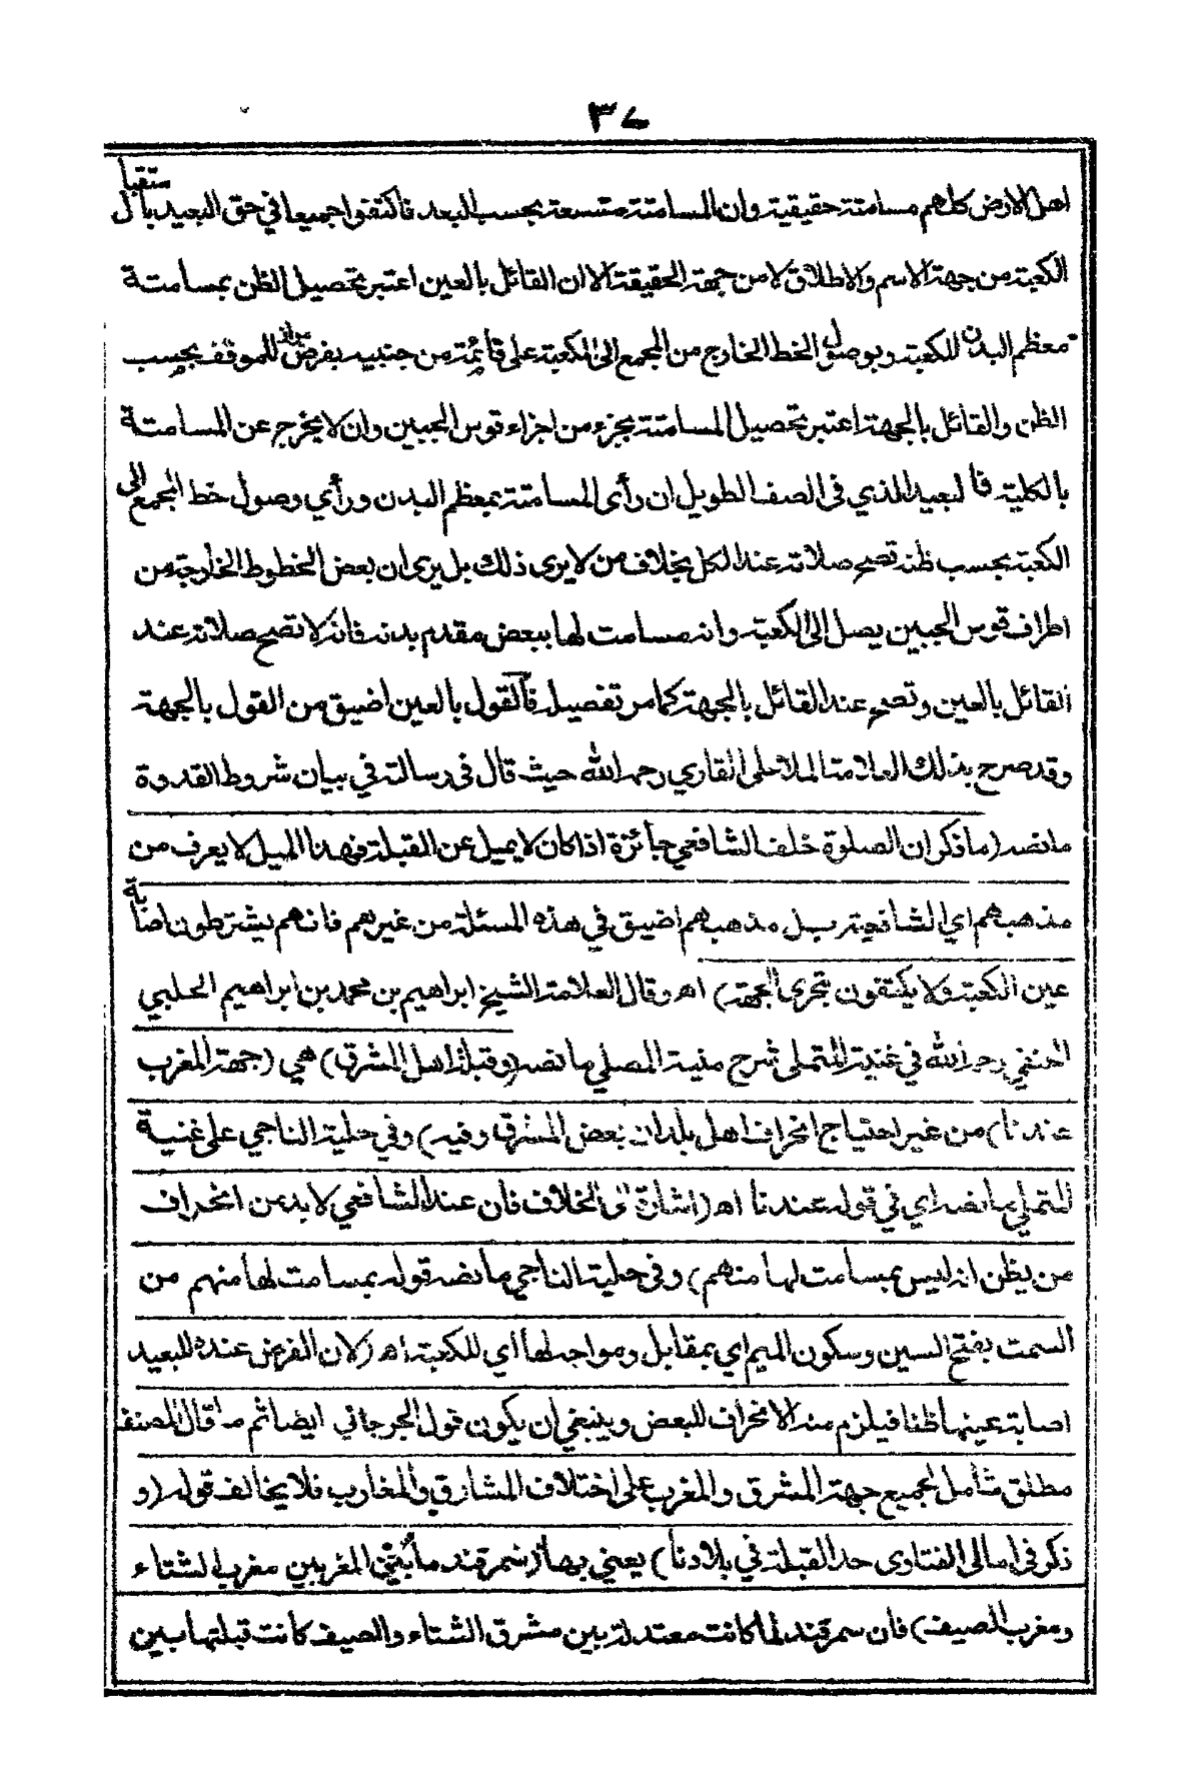 ٣٧
اهل الارض كلهم مسامتة حقيقية وان المسامتة متسعة بحسب البعد فاكتفوا جميعا في حق البعيد باستقبال
الكعبة من جهة الاسم والاطلاق لا من جهة الحقيقة الا ان القائل بالعين اعتبر تحصيل الظن بمسامتة
معظم البدن للكعبة وبوصول الخط الخارج من المجمع الى الكعبة على قائمة من جنبيه بفرض للموقف بحسب
الظن والقائل بالجهة اعتبر تحصيل المسامتة بجزء من اجزاء قوس الجبين وان لا يخرج عن المسامتة
بالكلية فالبعيد الذي في الصف الطويل ان رأى المسامتة بمعظم البدن ورأي وصول خط المجمع الى
الكعبة بحسب ظنه تصح صلاته عند الكل بخلاف من لا يرى ذلك بل يرى ان بعض الخطوط الخارجة من
اطراف قوس الجبين يصل الى الكعبة وانه مسامت لها ببعض مقدم بدنه فانه لا تصح صلاته عند
القائل بالعين وتصح عند القائل بالجهة كما مر تفصيله فالقول بالعين اضيق من القول بالجهة
وقد صرح بذلك العلامة الملا على القاري رحمه الله حيث قال في رسالته في بيان شروط القدوة
ما نصه (ما ذكر ان الصلوة خلف الشافعي جائزة اذا كان لا يميل عن القبلة فهذا الميل لا يعرف من
مذهبهم اي الشافعية بل مذهبهم اضيق في هذه المسئلة من غيرهم فانهم يشترطون اصابة
عين الكعبة ولا يكتفون بتحرى الجهة) اه وقال العلامة الشيخ ابراهيم بن محمد بن ابراهيم الحلبي
الحنفي رحمه الله في غنية المتملى شرح منية المصلي ما نصه (وقبلة اهل المشرق) هي (جهة المغرب
عندنا) من غير احتياج انحراف اهل بلدان بعض المشرق وفيه) وفي حلية الناجي على غنية
المتملي ما نصه اي في قوله عندنا اه (اشارة الى الخلاف فان عند الشافعي لا بد من انحراف
من يظن انه ليس بمسامت لها منهم) وفي حلية الناجي ما نصه قوله بمسامت لها منهم من
السمت بفتح السين وسكون الميم اي بمقابل ومواجه لها اي للكعبة اه (لان الفرض عنده للبعيد
اصابة عينها ظنا فيلزم منه الانحراف للبعض وينبغي ان يكون قول الجرجاني ايضا ثم ما قال المصنف
مطلق شامل لجميع جهة المشرق والمغرب على اختلاف المشارق والمغارب فلا يخالف قوله (و
ذكر في امالى الفتاوى حد القبلة في بلادنا) يعني بها (سمرقند ما بين المغربين مغرب الشتاء
ومغرب الصيف) فان سمرقند لما كانت معتدلة بين مشرق الشتاء والصيف كانت قبلتها بين